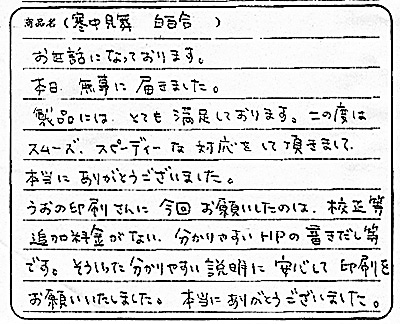 商品名(寒中見舞 白百合 )
お世話になっております。
本日 無事に届きました。
製品には、とても満足しております。この度は
スムーズ、スピーディーな対応をして頂きまして
本当にありがとうございました。
うおの印刷さんに今回お願いしたのは、校正等
追加料金がない、分かりやすいHPの書きだし等
です。そういった分かりやすい説明に安心して印刷を
お願いいたしました。本当にありがとうございました。